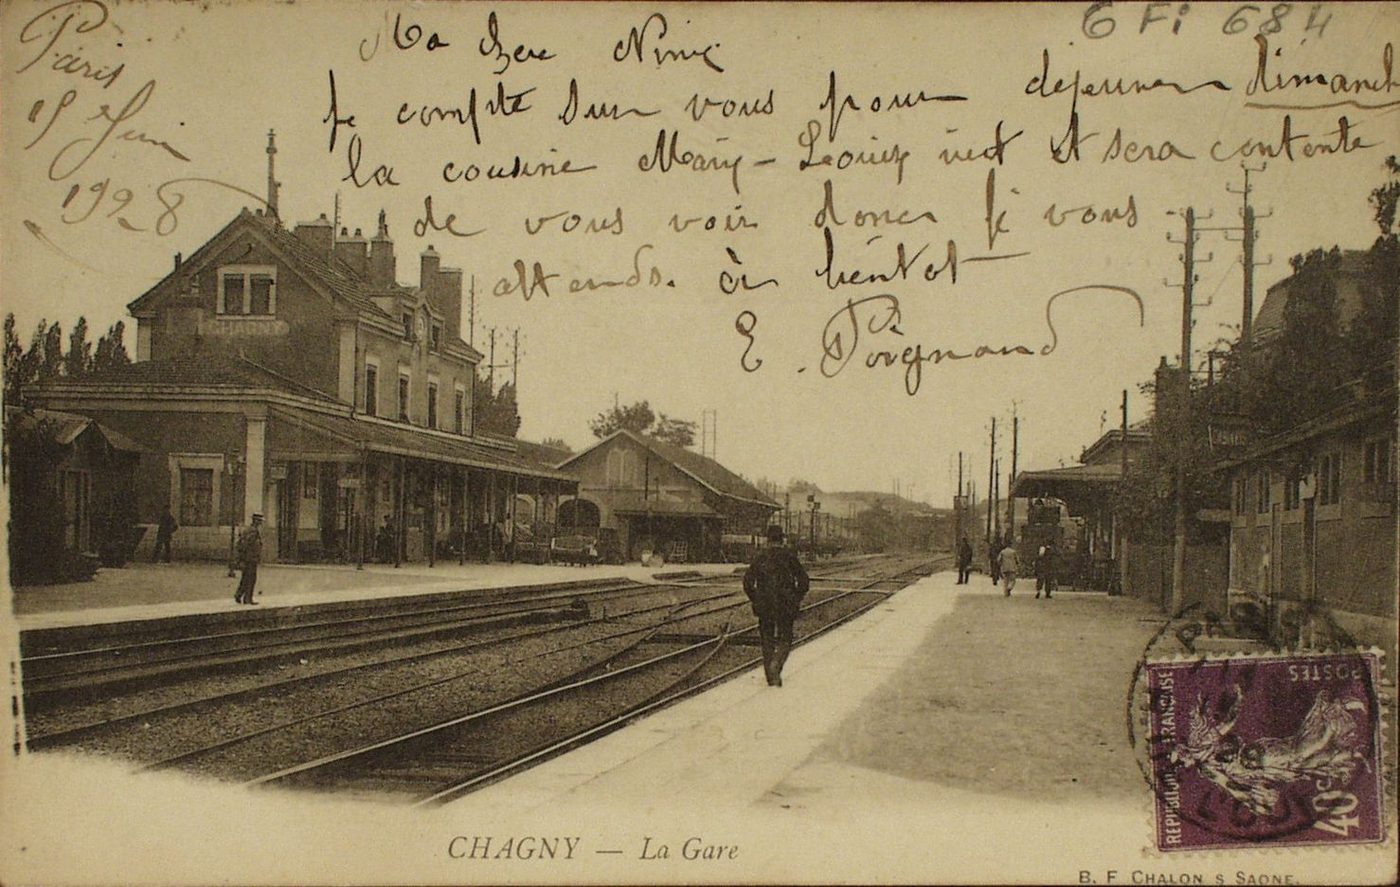 6 Fi 684
Paris
15 Juin
1928
Ma chere Ninie
je compte sur vous pour dejeuner dimanch
la cousine Mary - vient et sera contente
de vous voir donc je vous
attends. à bientot
E. Poignand
CHAGNY
PARIS
REPUBLIQUE FRANÇAISE
POSTES
40c
CHAGNY — La Gare
B. F CHALON S SAONE.